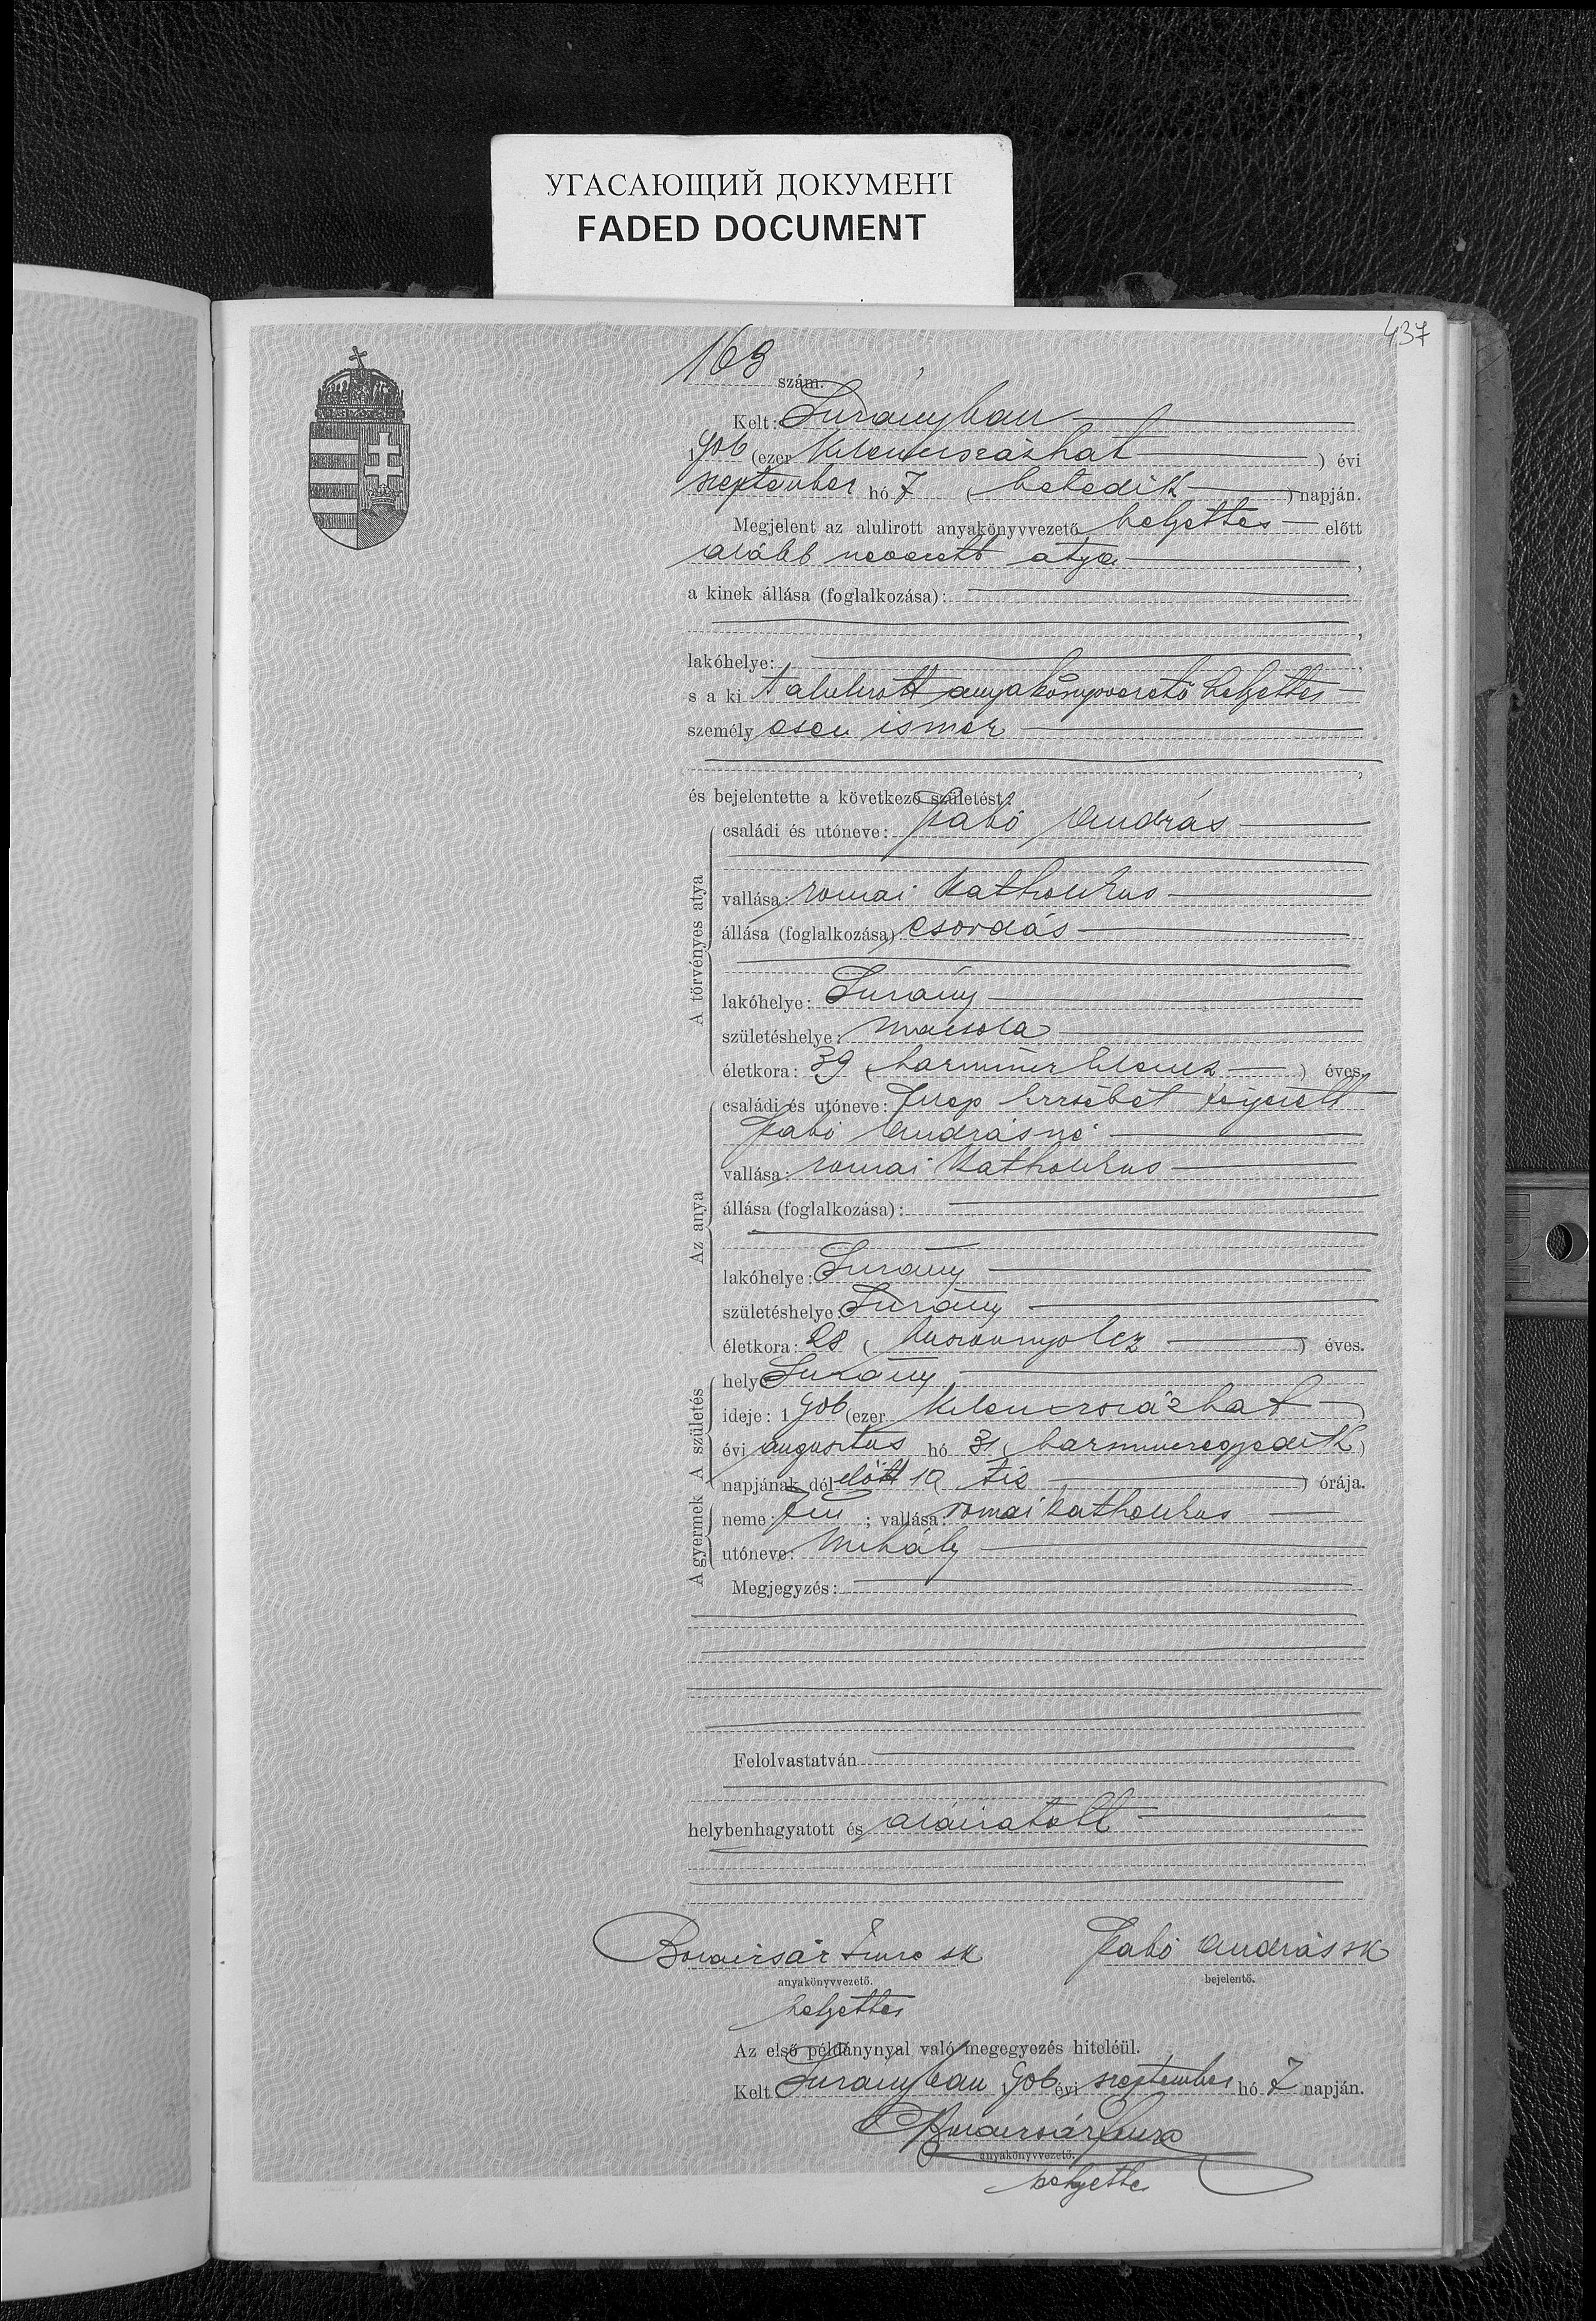 УГАСАЮЩИЙ ДОКУМЕНТ
FADED DOCUMENT
437
163 szám.
Kelt: Surányban
1906 (ezer kilenczszázhat ) évi
szeptember hó 7 ( hetedik ) napján.
Megjelent az alulirott anyakönyvvezető helyettes előtt
alább nevezett atya ,
a kinek állása (foglalkozása):
,
lakóhelye: ,
s a ki t alulirott anyakönyvvezető helyettes
személy esen ismer
,
és bejelentette a következő születést:
A törvényes atya
családi és utóneve: Fabó András
vallása: romai katholikus
állása (foglalkozása): csordás
lakóhelye: Surány
születéshelye:
életkora: 39 (harminczkilencz ) éves.
Az anya
családi és utóneve: Erzsébet férjezett
Fabó Andrásné
vallása: romai katholikus
állása (foglalkozása):
lakóhelye: Surány
születéshelye: Surány
életkora: 28 ( huszonnyolcz ) éves.
A születés
helye Surány
ideje: 1906 (ezer kilenczszázhat )
évi augusztus hó 31 (harminczegyedik)
napjának dél előtt 10 tíz ) órája.
A gyermek
neme: fiu ; vallása: romai katholikus
utóneve: Mihály
Megjegyzés:
Felolvastatván
helybenhagyatott és aláiratott
Imre sk Fabó András sk
anyakönyvvezető. bejelentő.
helyettes
Az első példánynyal való megegyezés hiteléül.
Kelt Surányban 1906 évi szeptember hó 7 napján.
Imre
anyakönyvvezető.
helyettes